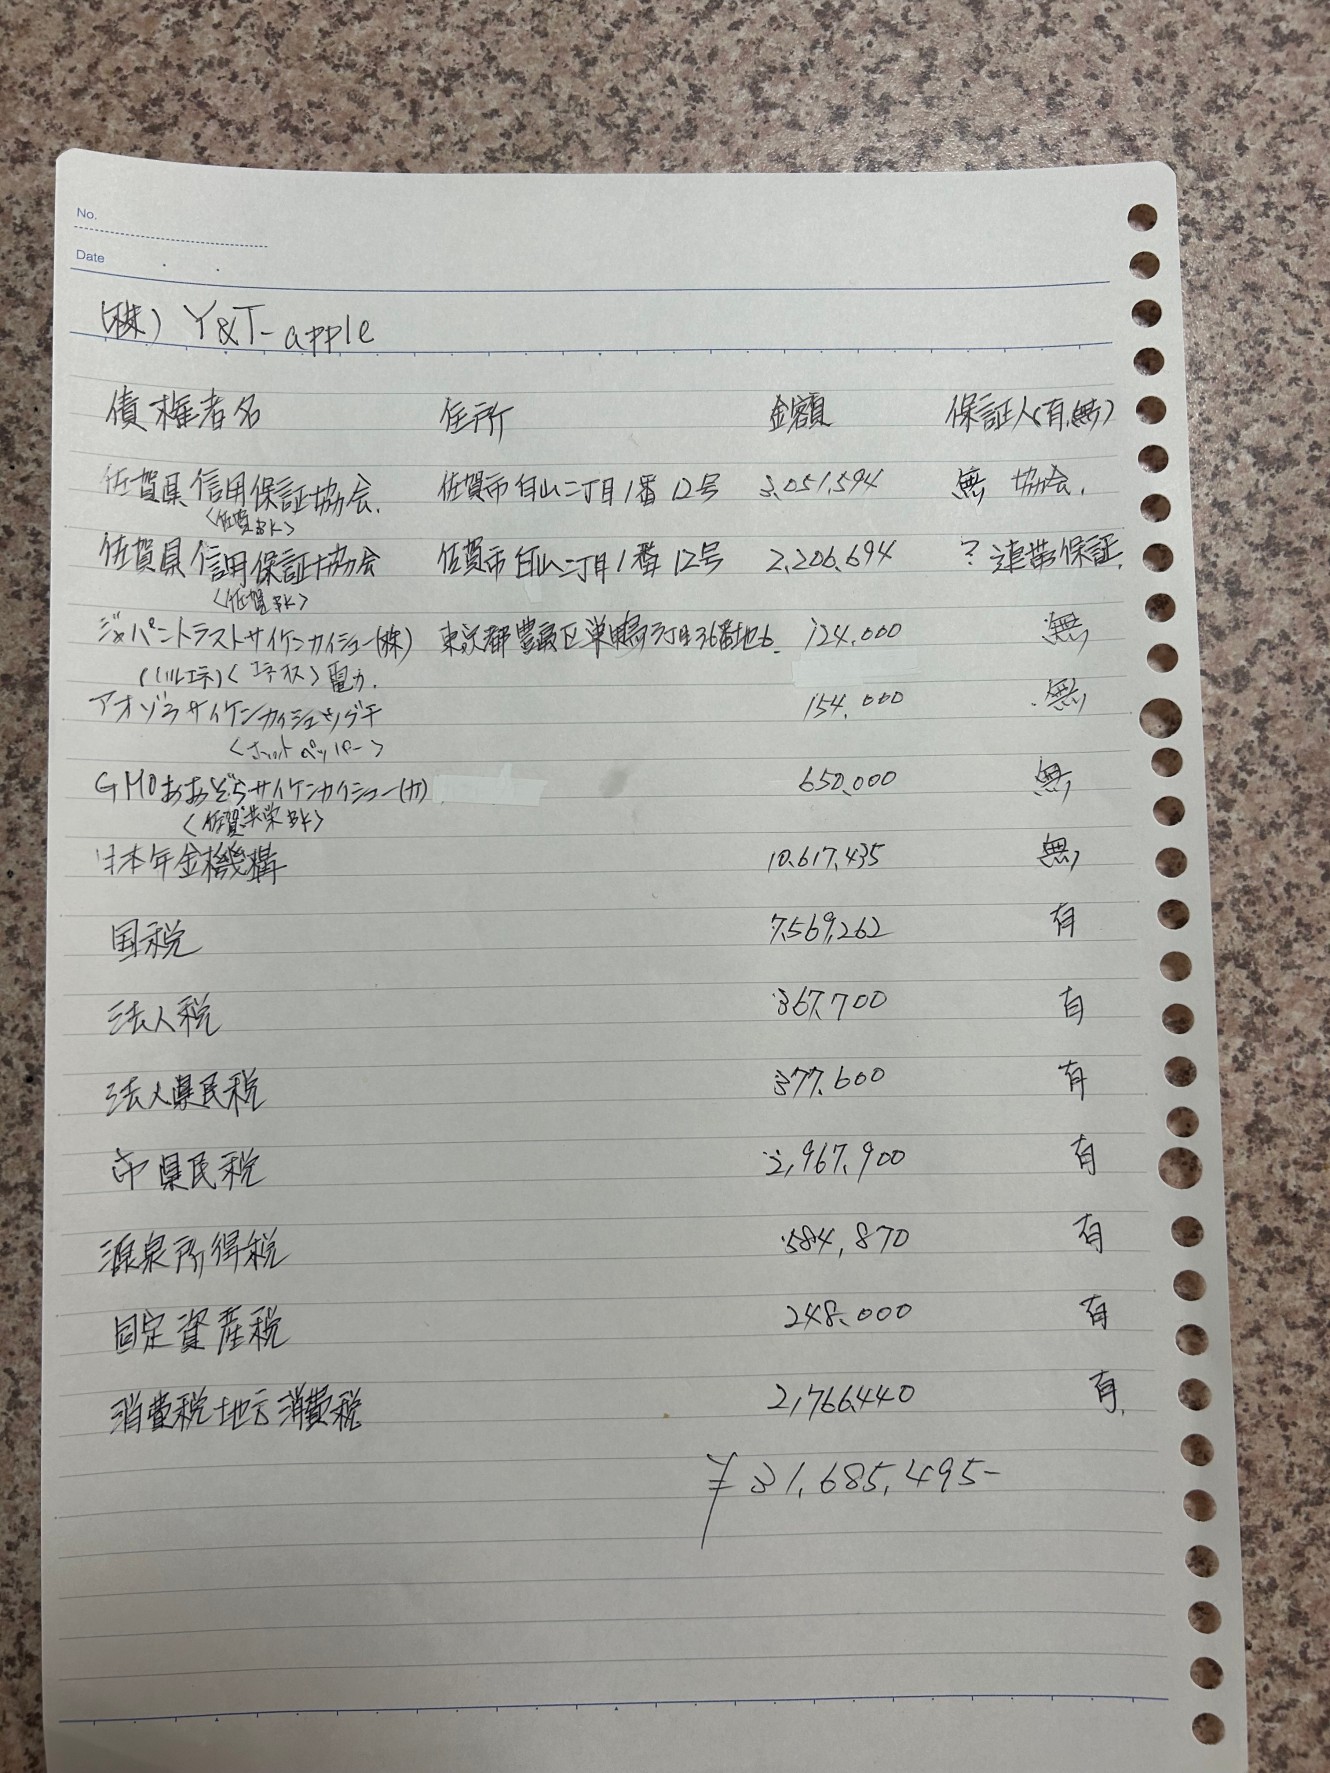 No.
Date
(株) Y&T-apple
債権者名 住所 金額 保証人(有.無)
佐賀県信用保証協会. 佐賀市白山二丁目1番12号 3,051,594 無 協会.
<佐賀BK>
佐賀県信用保証協会 佐賀市白山二丁目1番12号 2,206,694 ? 連帯保証.
<佐賀BK>
ジャパントラストサイケンカイシュー(株) 東京都豊島区巣鴨 36番地6. 124,000 無
(ハルエネ)<エネオス>電力.
アオゾラサイケンカイシュウグチ 154,000 無
<ホットペッパー>
GMOあおぞらサイケンカイシュー(カ) 650,000 無
<佐賀共栄BK>
日本年金機構 10,617,435 無
国税 7,569,262 有
法人税 367,700 有
法人県民税 377,600 有
市県民税 2,967,900 有
源泉所得税 584,870 有
固定資産税 248,000 有
消費税地方消費税 2,766,440 有.
¥31,685,495-